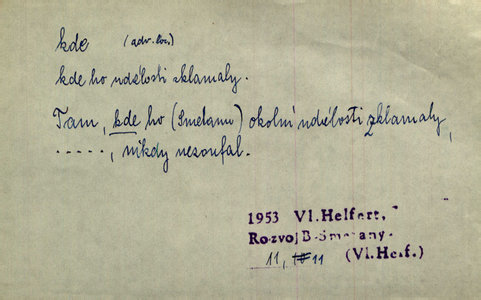 kde (adv. loc.)
kde ho události zklamaly.
Tam, kde ho (Smetanu) okolní události zklamaly,
....., nikdy nezoufal.
1953 Vl. Helfert,
Rozvoj B. Smetany
11, 11 (Vl. Helf.)